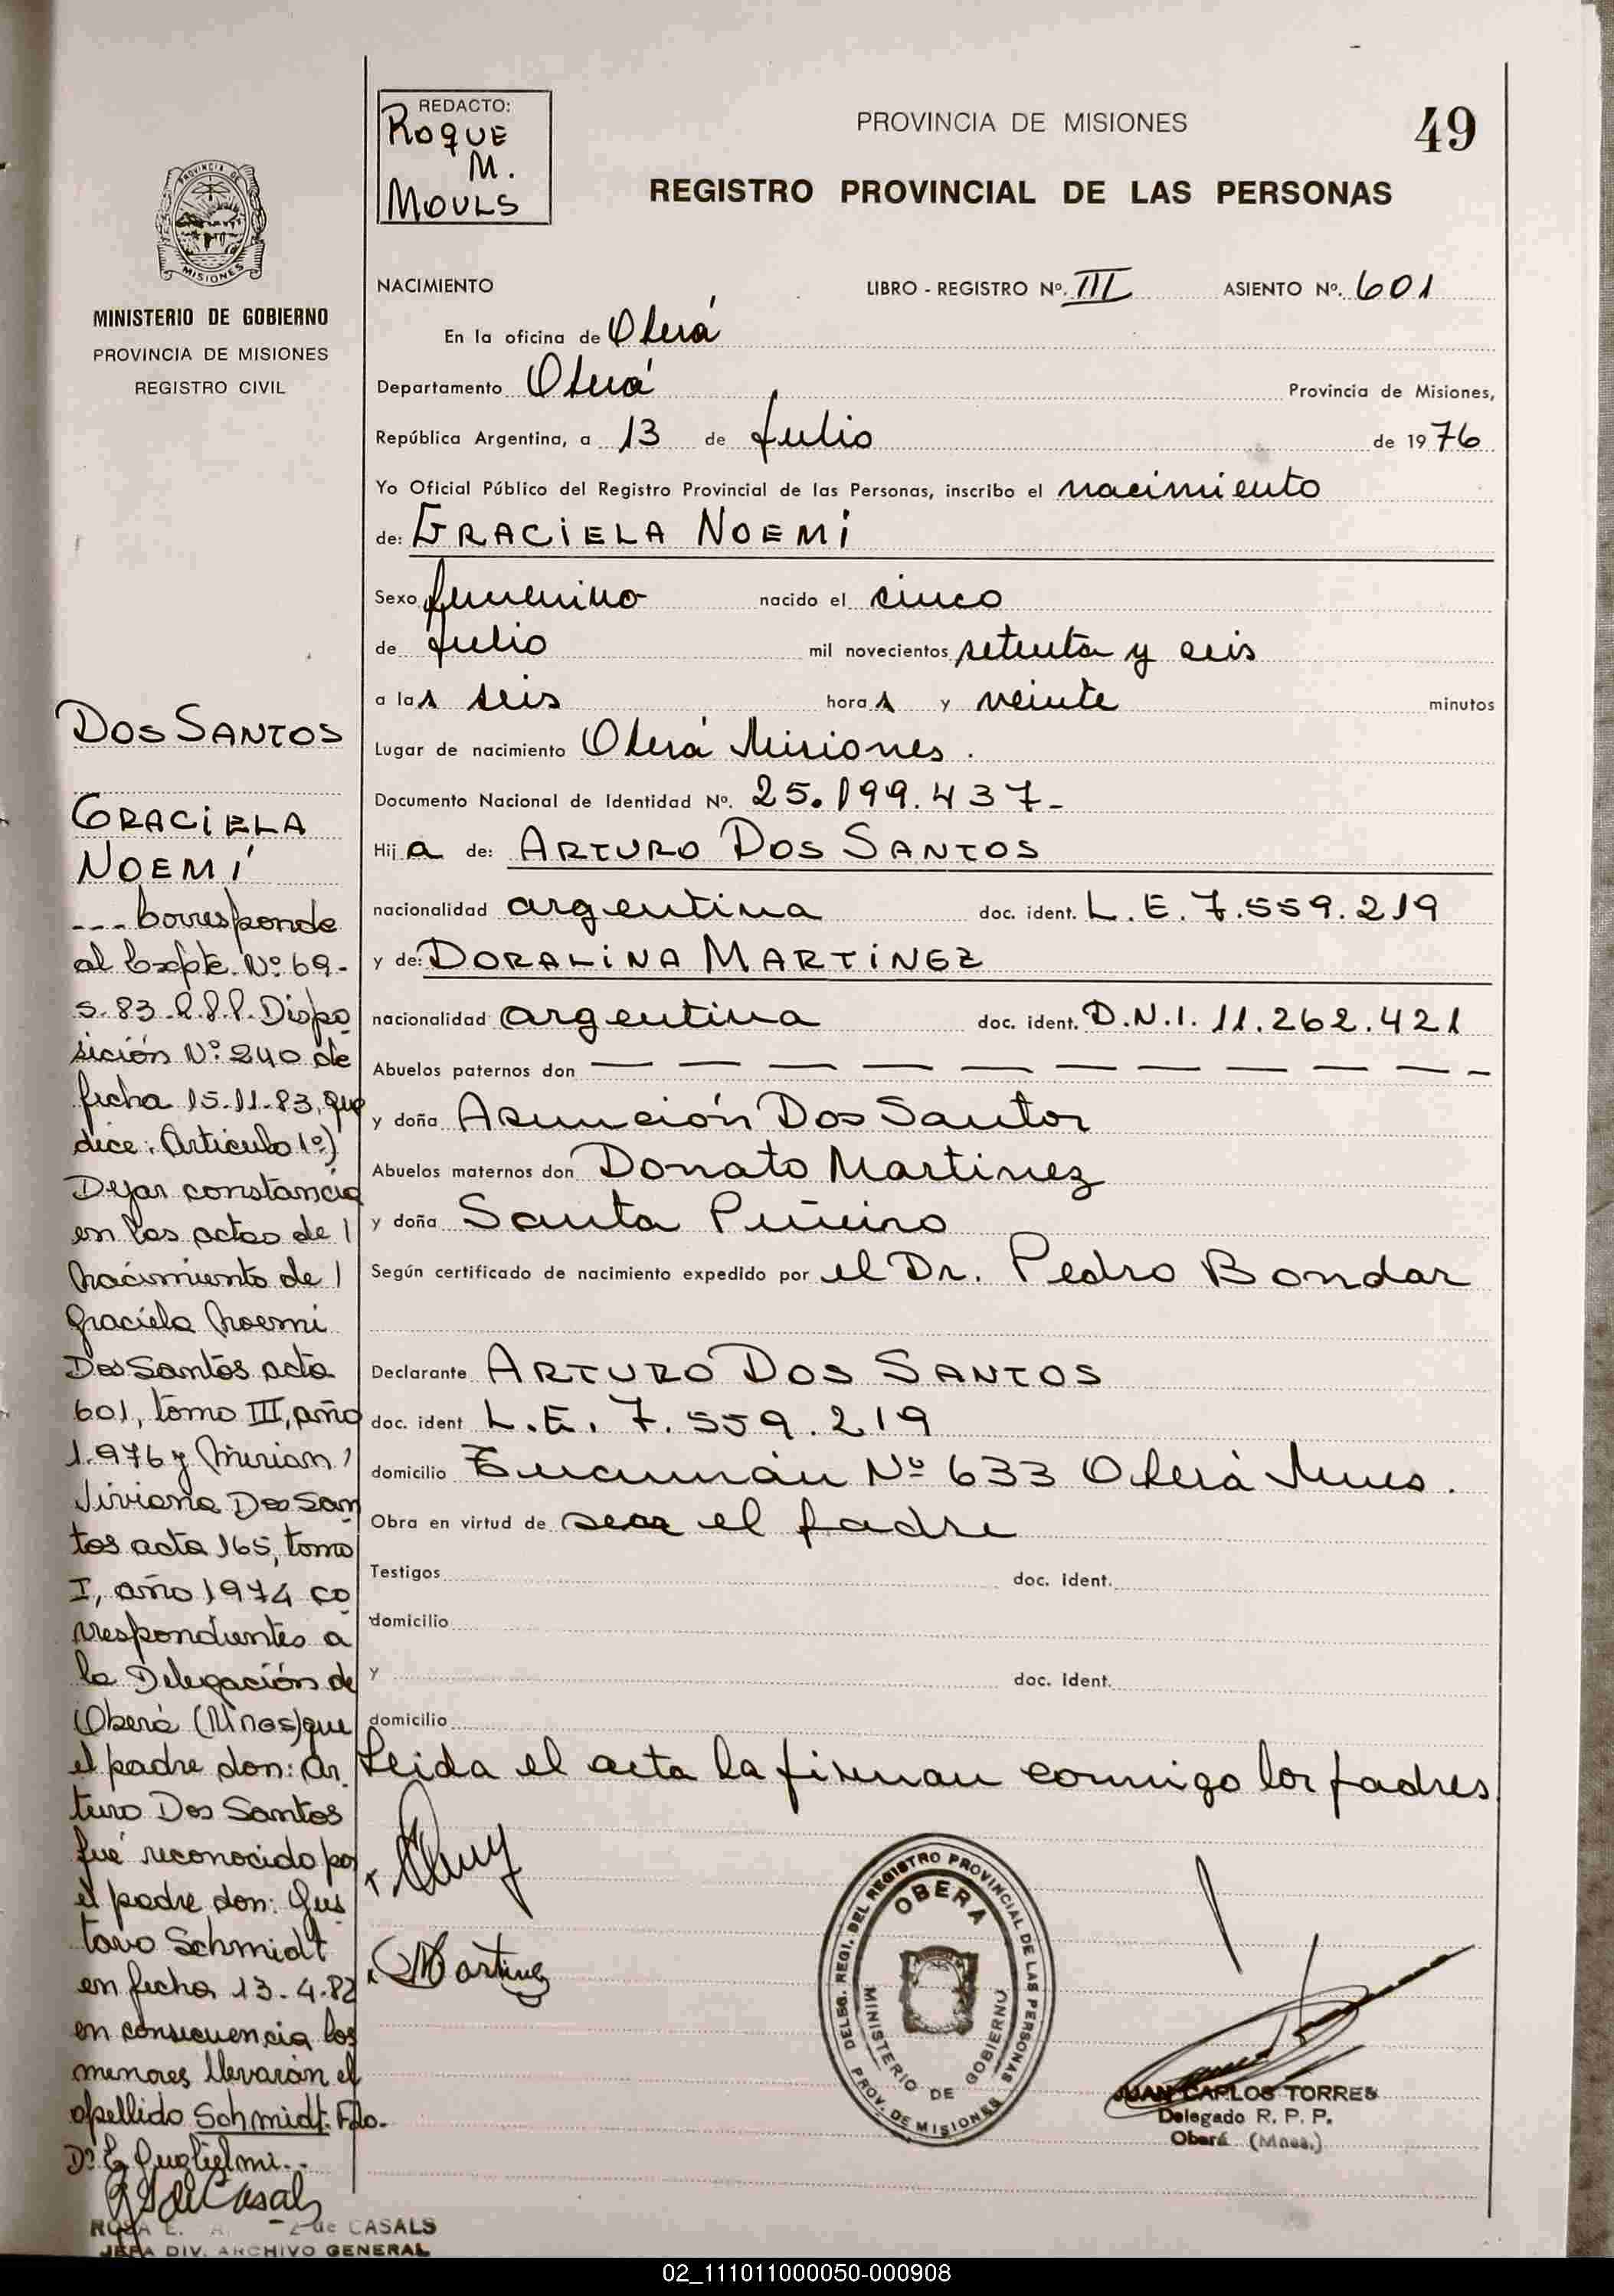 REDACTO:
ROQUE
M.
MOULS
PROVINCIA DE MISIONES
49
REGISTRO PROVINCIAL DE LAS PERSONAS
PROVINCIA DE
MISIONES
MINISTERIO DE GOBIERNO
PROVINCIA DE MISIONES
REGISTRO CIVIL
NACIMIENTO LIBRO - REGISTRO Nº. III ASIENTO Nº. 601
En la oficina de Oberá
Departamento Oberá Provincia de Misiones,
República Argentina, a 13 de Julio de 1976
Yo Oficial Público del Registro Provincial de las Personas, inscribo el nacimiento
de: GRACIELA NOEMI
Sexo femenino nacido el cinco
de Julio mil novecientos setenta y seis
a las seis horas y veinte minutos
Lugar de nacimiento Oberá Misiones.
Documento Nacional de Identidad Nº. 25.199.437-
Hija de: ARTURO DOS SANTOS
nacionalidad argentina doc. ident. L.E. 7.559.219
y de: DORALINA MARTINEZ
nacionalidad argentina doc. ident. D.N.I. 11.262.421
Abuelos paternos don — — — — — — — — — — -
y doña Asunción Dos Santos
Abuelos maternos don Donato Martinez
y doña Santa Piñeiro
Según certificado de nacimiento expedido por el Dr. Pedro Bondar
Declarante ARTURO DOS SANTOS
doc. ident L.E. 7.559.219
domicilio Tucumán Nº 633 Oberá Mnes.
Obra en virtud de sear el padre
Testigos doc. ident.
domicilio
y doc. ident.
domicilio
Leida el acta la firman conmigo los padres
Martinez
DOS SANTOS
GRACIELA
NOEMÍ
--- Corresponde
al Expte. Nº 69-
S-83-R.P.P. Dispo
sición Nº 240 de
fecha 15-11-83, que
dice: Artículo 1º)
Dejar constancia
en las actas de
nacimiento de
Graciela Noemi
Dos Santos acta
601, tomo III, año
1.976 y Mirian
Viviana Dos San
tos acta 165, tomo
I, año 1974 co
rrespondientes a
la Delegación de
Oberá (Mnes) que
el padre don: Ar
turo Dos Santos
fué reconocido por
el padre don: Gus
tavo Schmidt
en fecha 13-4-82
en consecuencia los
menores llevarán el
apellido Schmidt. Fdo-
Dr. E. Guglielmi.-
ROSA E. de CASALS
JEFA DIV. ARCHIVO GENERAL
DELEG. REGI. DEL REGISTRO PROVINCIAL DE LAS PERSONAS
OBERA
MINISTERIO DE GOBIERNO
PROV. DE MISIONES
JUAN CARLOS TORRES
Delegado R. P. P.
Oberá (Mnes.)
02_111011000050-000908